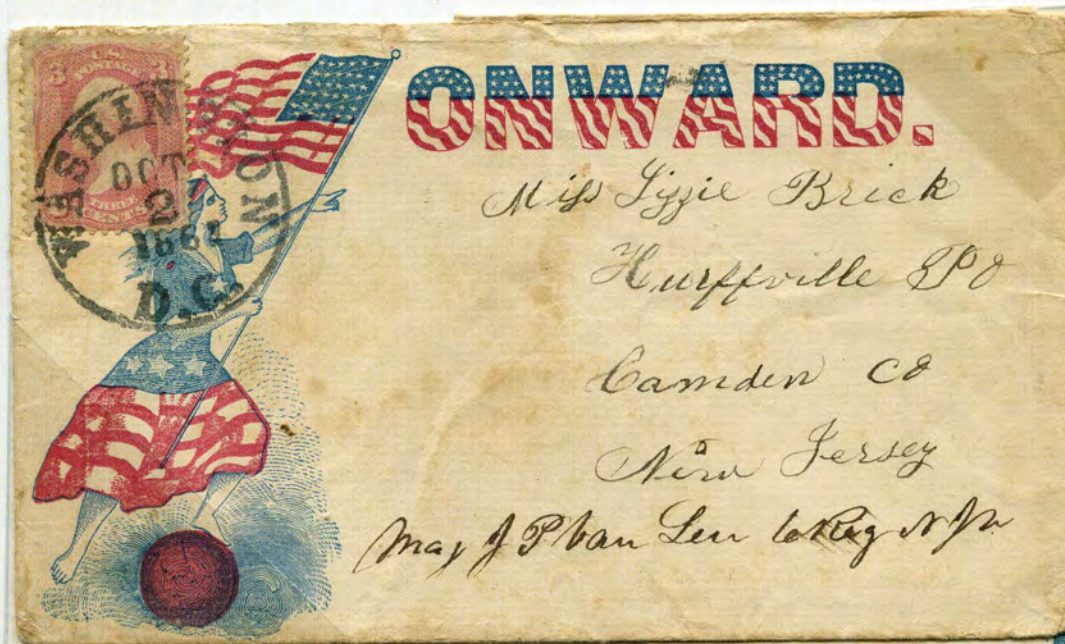 U.S.
POSTAGE
3 3
THREE
CENTS
WASHINGTON
OCT
2
1861
D.C.
ONWARD.
Miss Lizzie Brick
Hurffville P O
Camden co
New Jersey
Maj J P Van Leer Reg N J